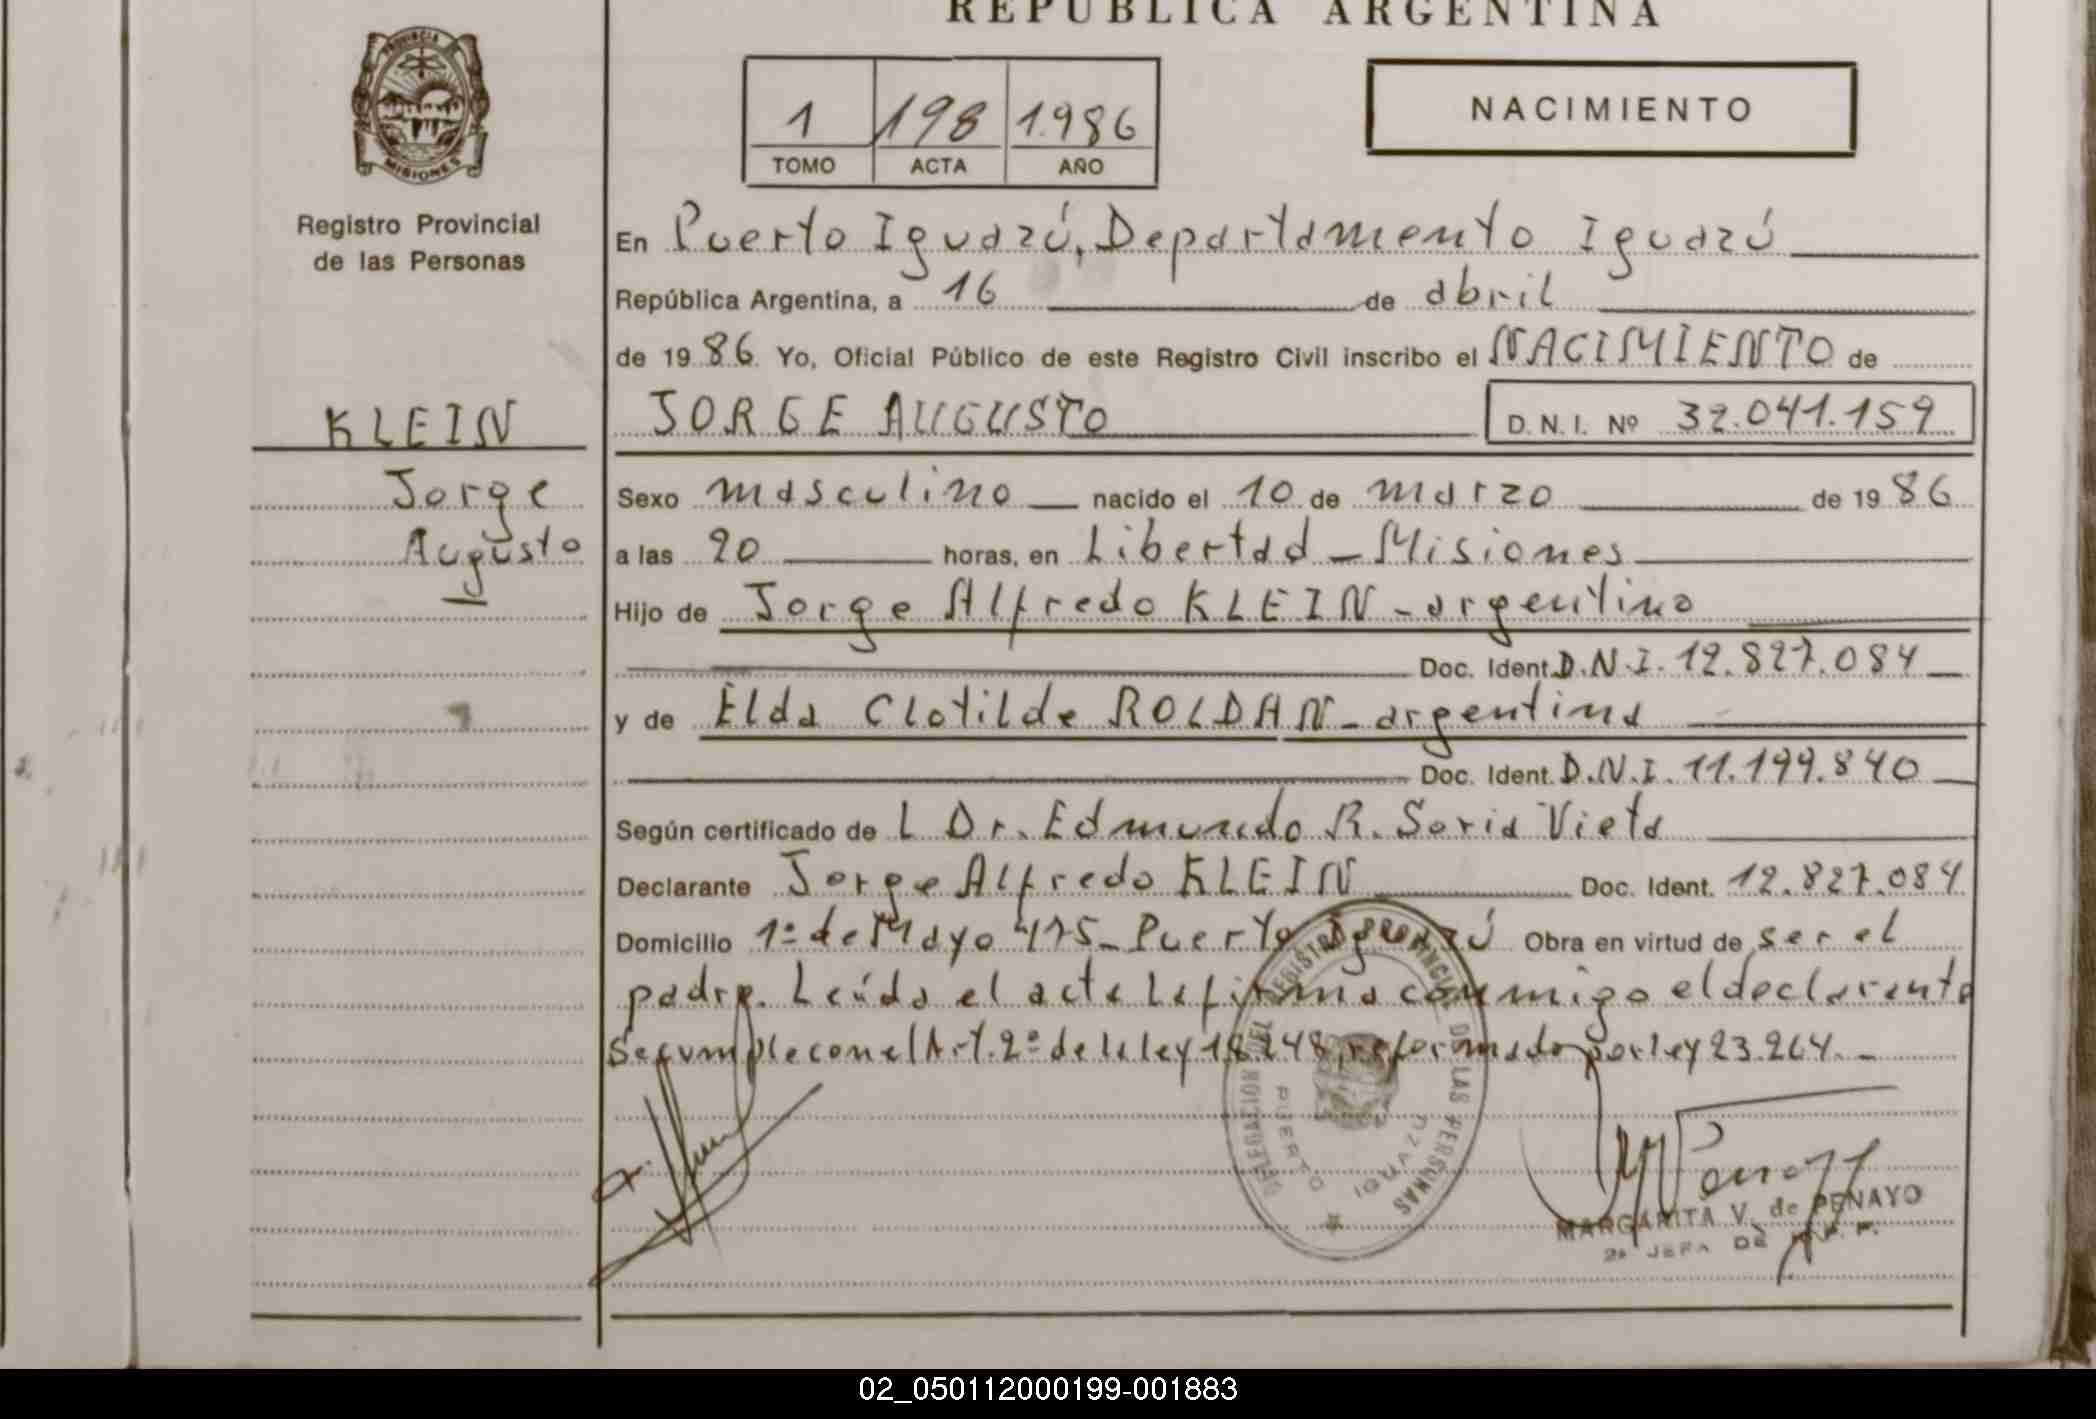 REPUBLICA ARGENTINA
PROVINCIA DE
MISIONES
Registro Provincial
de las Personas
1 198 1.986
TOMO ACTA AÑO
NACIMIENTO
En Puerto Iguazú, Departamento Iguazú
República Argentina, a 16 de abril
de 1986 Yo, Oficial Público de este Registro Civil inscribo el NACIMIENTO de
KLEIN
JORGE AUGUSTO D. N. I. Nº 32.041.159
Jorge
Augusto
Sexo masculino nacido el 10 de marzo de 1986
a las 20 horas, en Libertad - Misiones
Hijo de Jorge Alfredo KLEIN - argentino
Doc. Ident. D.N.I. 12.827.084
y de Elda Clotilde ROLDAN - argentina
Doc. Ident. D.N.I. 11.199.840
Según certificado de L Dr. Edmundo R. Soria Vieta
Declarante Jorge Alfredo KLEIN Doc. Ident. 12.827.084
Domicilio 1º de Mayo 415 - Puerto Iguazú Obra en virtud de ser el
padre. Leída el acta la firma conmigo el declarante
Se cumple con el Art. 2º de la ley 18.248, reformado por ley 23.264. -
DELEGACION DEL REGISTRO PROVINCIAL DE LAS PERSONAS
PUERTO IGUAZU
MARGARITA V. de PENAYO
2a JEFA DE
02_050112000199-001883